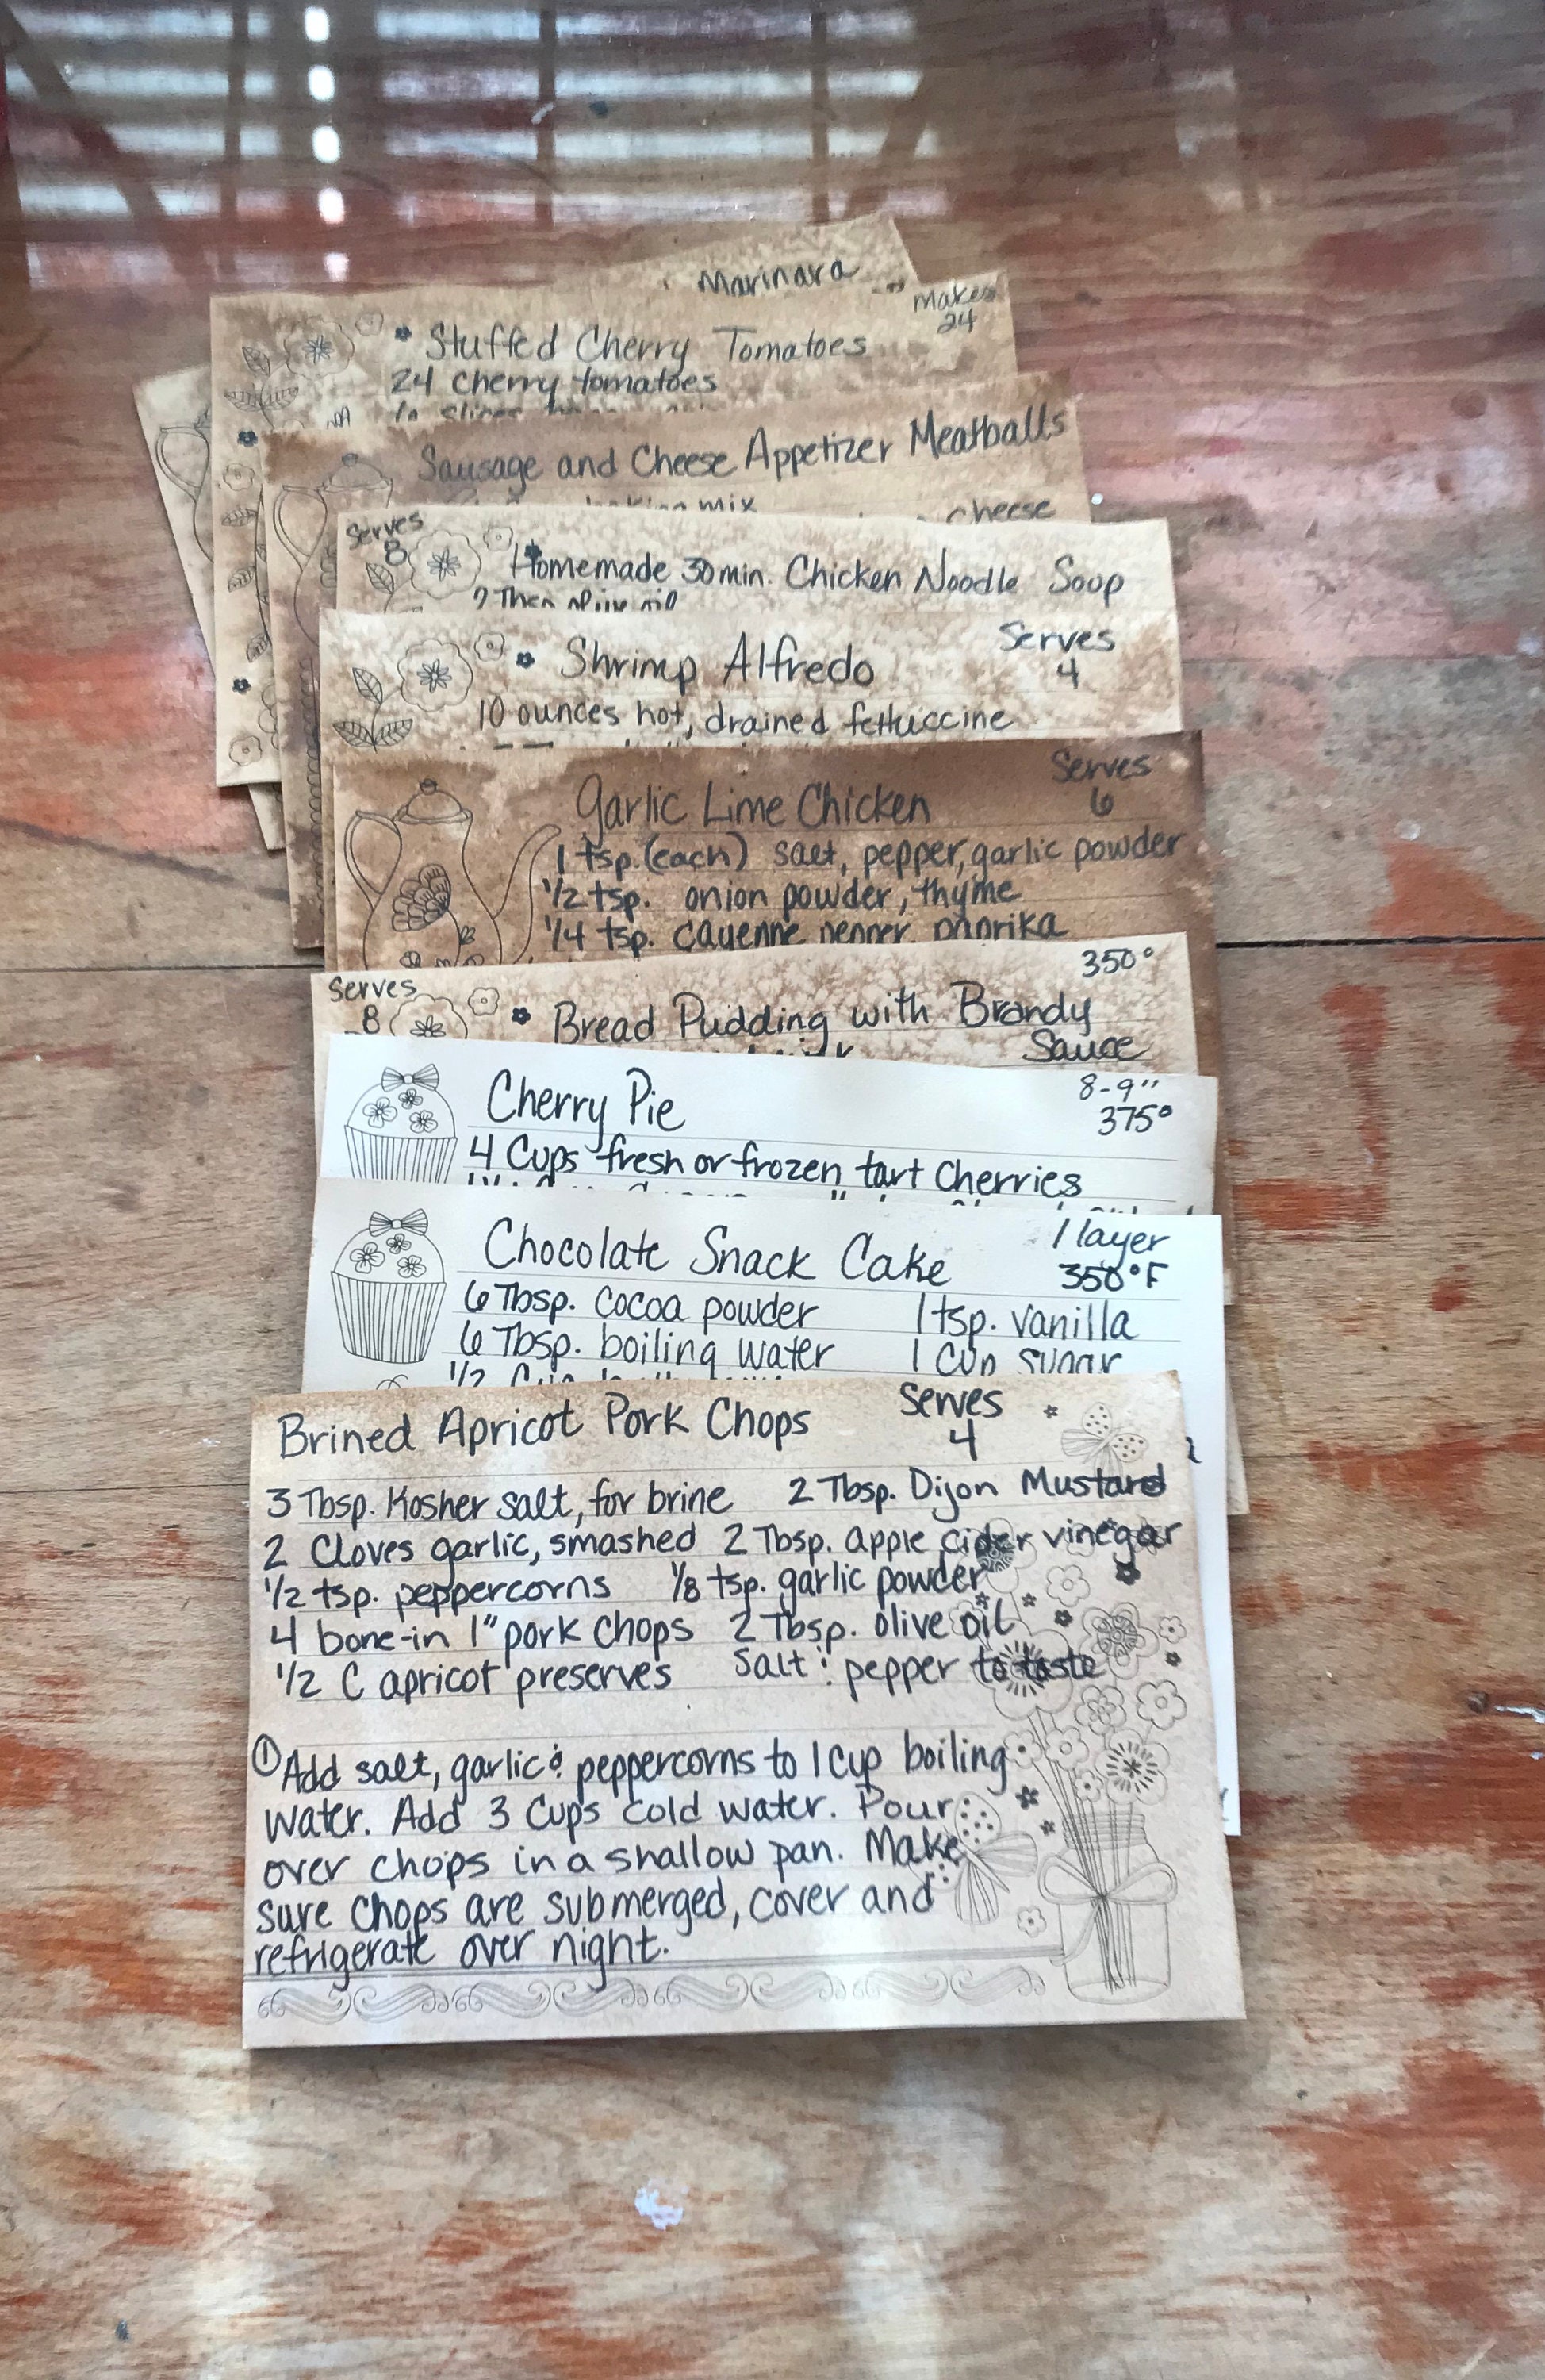 Marinara
Makes
24
Stuffed Cherry Tomatoes
24 cherry tomatoes
Sausage and Cheese Appetizer Meatballs
baking mix
cheese
Serves
8
Homemade 30 min. Chicken Noodle Soup
olive oil
Serves
4
Shrimp Alfredo
10 ounces hot, drained fettuccine
Serves
6
Garlic Lime Chicken
1 tsp. (each) salt, pepper, garlic powder
1/2 tsp. onion powder, thyme
1/4 tsp. cayenne pepper, paprika
350°
Serves
8
Bread Pudding with Brandy
Sauce
8-9"
375°
Cherry Pie
4 Cups fresh or frozen tart Cherries
1 layer
350°F
Chocolate Snack Cake
6 Tbsp. cocoa powder 1 tsp. vanilla
6 Tbsp. boiling water 1 Cup sugar
1/2 Cup
Brined Apricot Pork Chops
Serves
4
3 Tbsp. Kosher salt, for brine 2 Tbsp. Dijon Mustard
2 Cloves garlic, smashed 2 Tbsp. apple cider vinegar
1/2 tsp. peppercorns 1/8 tsp. garlic powder
4 bone-in 1" pork chops 2 Tbsp. olive oil
1/2 C apricot preserves Salt & pepper to taste
① Add salt, garlic & peppercorns to 1 cup boiling
water. Add 3 Cups cold water. Pour
over chops in a shallow pan. Make
sure chops are submerged, cover and
refrigerate over night.